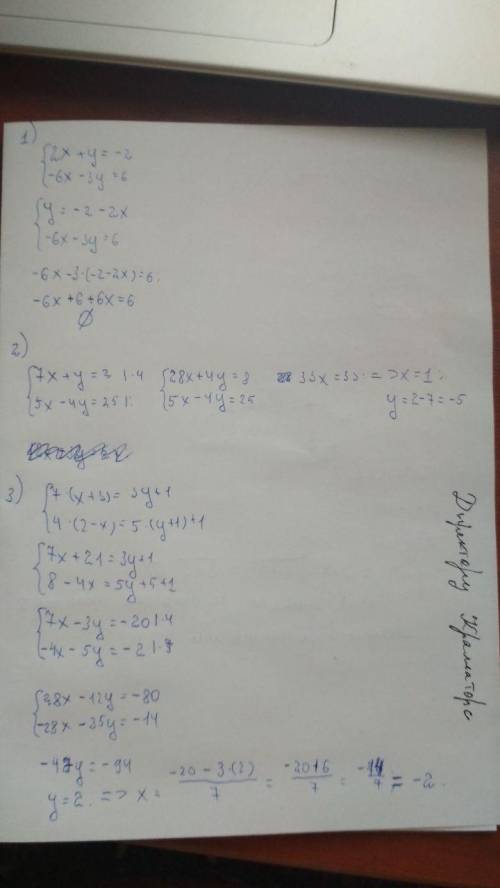 1)
{2x + y = -2
{-6x - 3y = 6
{y = -2 - 2x
{-6x - 3y = 6
-6x - 3·(-2-2x) = 6.
-6x + 6 + 6x = 6
∅
2)
{7x + y = 2 |·4 {28x + 4y = 8 33x = 33 => x = 1.
{5x - 4y = 25 |. {5x - 4y = 25 y = 2 - 7 = -5
3) {7·(x+3) = 3y+1
{4·(2-x) = 5·(y+1)+1
{7x + 21 = 3y+1
{8 - 4x = 5y+5+1
{7x - 3y = -20 |·4
{-4x - 5y = -2 |·7
{28x - 12y = -80
{-28x - 35y = -14
-47y = -94
y = 2. => x = -20 - 3·(2) / 7 = -20+6 / 7 = -14 / 7 = -2.
Директору Краматорс